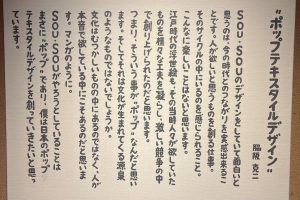 "ポップテキスタイルデザイン"
脇阪 克二
SOU・SOUのデザインをしていて面白いと
思うのは、今の時代とのつながりを実感出来るこ
とです。人が欲しいと思うものを創る仕事。
そのサイクルの中にいるのを感じられること。
こんなに楽しいことはないと思います。
江戸時代の浮世絵も、その当時人々が欲していた
ものを様々な工夫を凝らし、激しい競争の中
で創り上げられたものだと思います。
つまり、そういう事が"ポップ"なんだと思い
ます。そしてそれは文化が生まれてくる源泉
のようなものではないでしょうか。
文化はむつかしいものの中にあるのではなく、人が
本音で欲している中にこそあるのだと思いま
す。マンガのように。
SOU・SOUがやろうとしていることは
まさに"ポップ"であり、僕は日本のポップ
テキスタイルデザインを創っていきたいと思っ
ています。